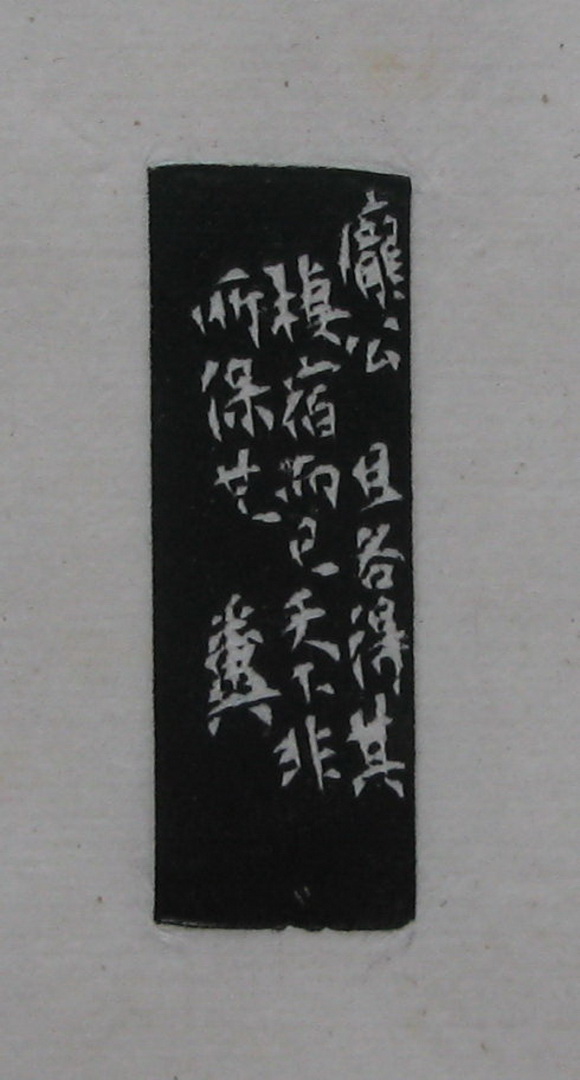 龐公 且各得其
棲宿而已天下非
所保也 龔